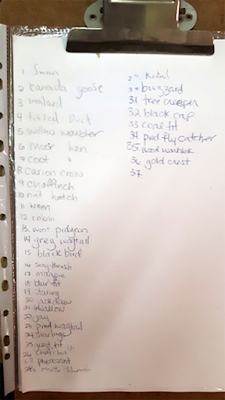 1 Swan
2 Canada goose
3 malard
4 tufted Duck
5 willow warbler
6 moor hen
7 coot
8 carion crow
9 chaffinch
10 nut hatch
11 wren
12 robin
13 wood pidgeon
14 grey wagtail
15 black bird
16 song thrush
17 magpie
18 blue tit
19 staring
20 jackdaw
21 swallow
22 jay
23 pied wagtail
24
25 great tit
26
27 pheasant
28
29
30 buzzard
31 tree creeper
32 black cap
33 coal tit
34 pied fly catcher
35 wood warbler
36 gold crest
37